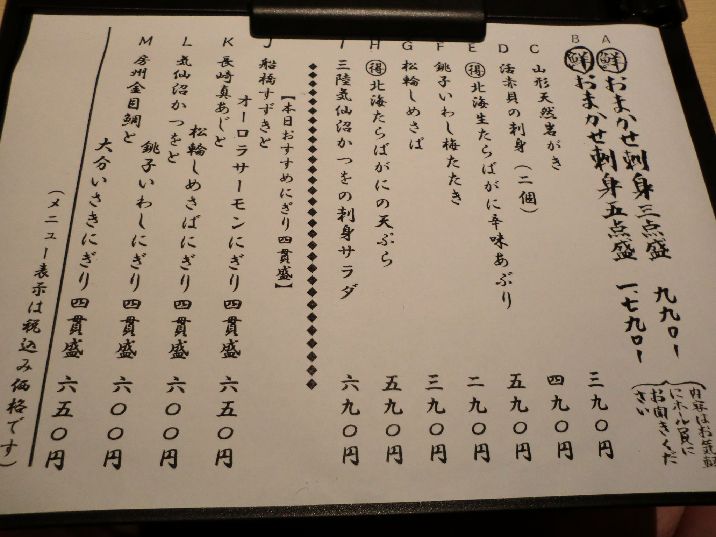 A 鮮 おまかせ刺身三点盛 九九〇ー
B 鮮 おまかせ刺身五点盛 一、七九〇ー
内容はお気軽
にホール員に
お聞きくだ
さい
C 山形天然岩がき 三九〇円
D 活赤貝の刺身(二個) 四九〇円
E 得 北海生たらばがに辛味あぶり 五九〇円
F 銚子いわし梅たたき 二九〇円
G 松輪しめさば 三九〇円
H 得 北海たらばがにの天ぷら 五九〇円
I 三陸気仙沼かつをの刺身サラダ 六九〇円
【本日おすすめにぎり四貫盛】
J 船橋すずきと
オーロラサーモンにぎり四貫盛 六五〇円
K 長崎真あじと
松輪しめさばにぎり四貫盛 六〇〇円
L 気仙沼かつをと
銚子いわしにぎり四貫盛 六〇〇円
M 房州金目鯛と
大分いさきにぎり四貫盛 六五〇円
(メニュー表示は税込み価格です)